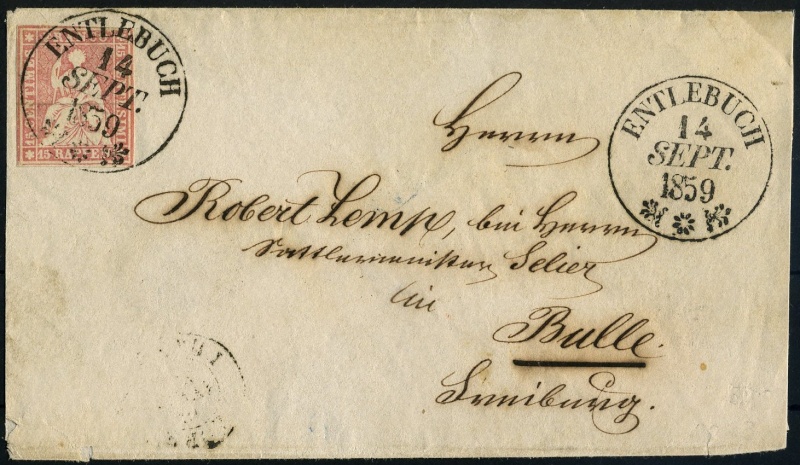 ENTLEBUCH
14
SEPT.
1859
15 RAPPEN
ENTLEBUCH
14
SEPT.
1859
Herrn
Robert Lemp, bei Herrn
Sattlermeister Selier
in
Bulle.
Freiburg.